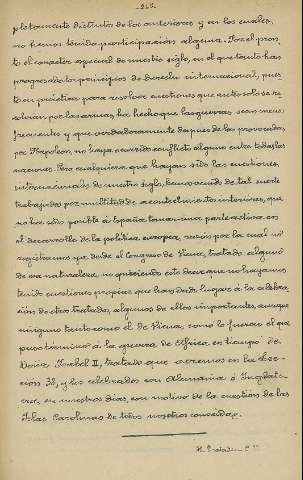 pletamente distintos de los anteriores y en los cuales,
no hemos tenido participación alguna. Por el pron-
to el carácter especial de nuestro siglo, en el que tanto han
progresado los principios de derecho internacional, pues-
to en práctica para resolver cuestiones que antes solo se re-
solvían por las armas, ha hecho que las guerras sean menos
frecuentes y que verdaderamente después de las provocadas
por Napoleon, no haya ocurrido conflicto alguno entre todas las
naciones. Pero cualesquiera que hayan sido las cuestiones
internacionales de nuestro siglo, hemos sido de tal suerte
trabajados por multitud de acontecimientos interiores, que
no ha sido posible á España tomar una parte activa en
el desarrollo de la política europea, razón por la cual no
registramos que desde el Congreso de Viena, tratado alguno
de esa naturaleza, no queriendo esto decir que no hayamos
tenido cuestiones propias que han dado lugar á la celebra-
ción de otros tratados, algunos de ellos importantes, aunque
ninguno tanto como el de Viena, como lo fueron el que
puso término á la guerra de Africa, en tiempo de
Doña Isabel II, tratado que veremos en la lec-
ción 38, y los celebrados con Alemania é Inglate-
rra, en nuestros dias, con motivo de la cuestión de las
Islas Carolinas de todos nosotros conocida.